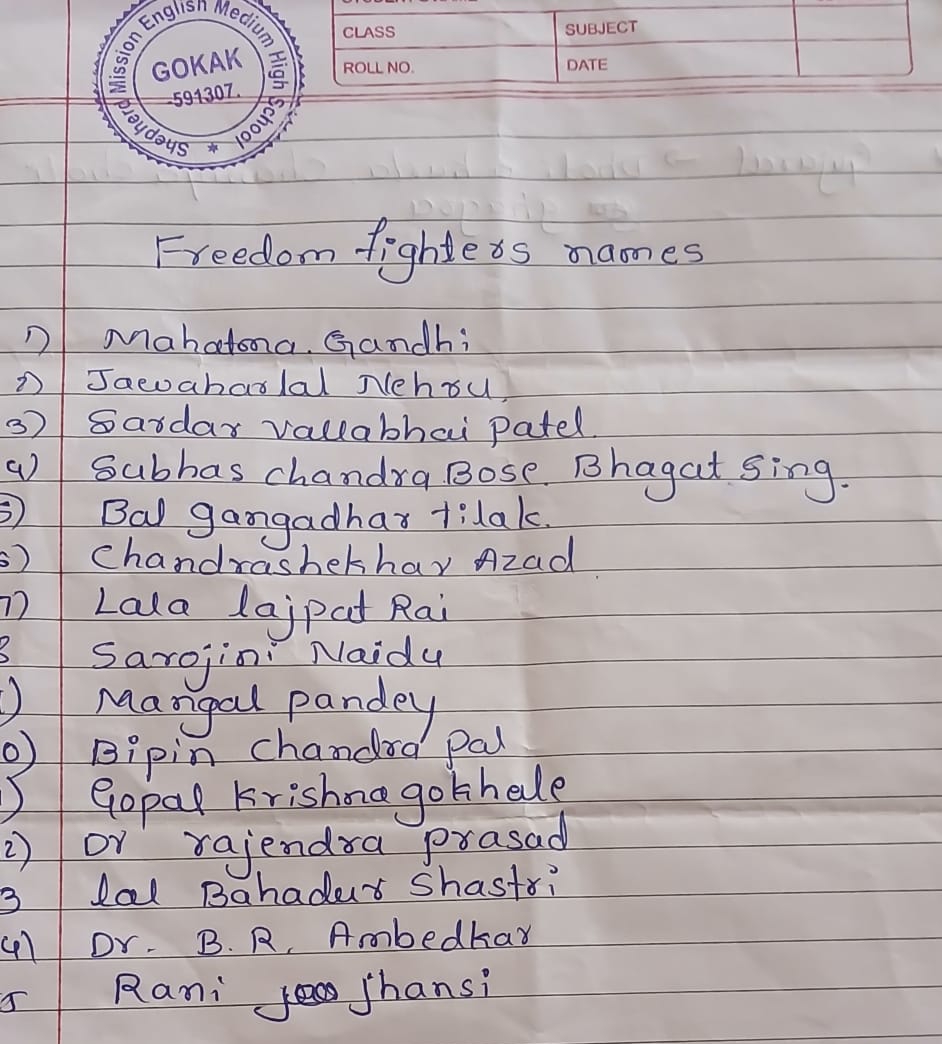 Shepherd Mission English Medium High School *
GOKAK
-591307.
CLASS
SUBJECT
ROLL NO.
DATE
Freedom fighters names
1) Mahatma. Gandhi
2) Jawaharlal Nehru.
3) Sardar vallabhai patel.
4) Subhas chandra Bose. Bhagat sing.
5) Bal gangadhar tilak.
6) Chandrashekhar Azad
7) Lala lajpat Rai
8 Sarojini Naidu
) Mangal pandey
0) Bipin chandra pal
) Gopal krishna gokhale
2) Dr rajendra prasad
3 lal Bahadur Shastri
4) Dr. B. R. Ambedkar
5 Rani jhansi